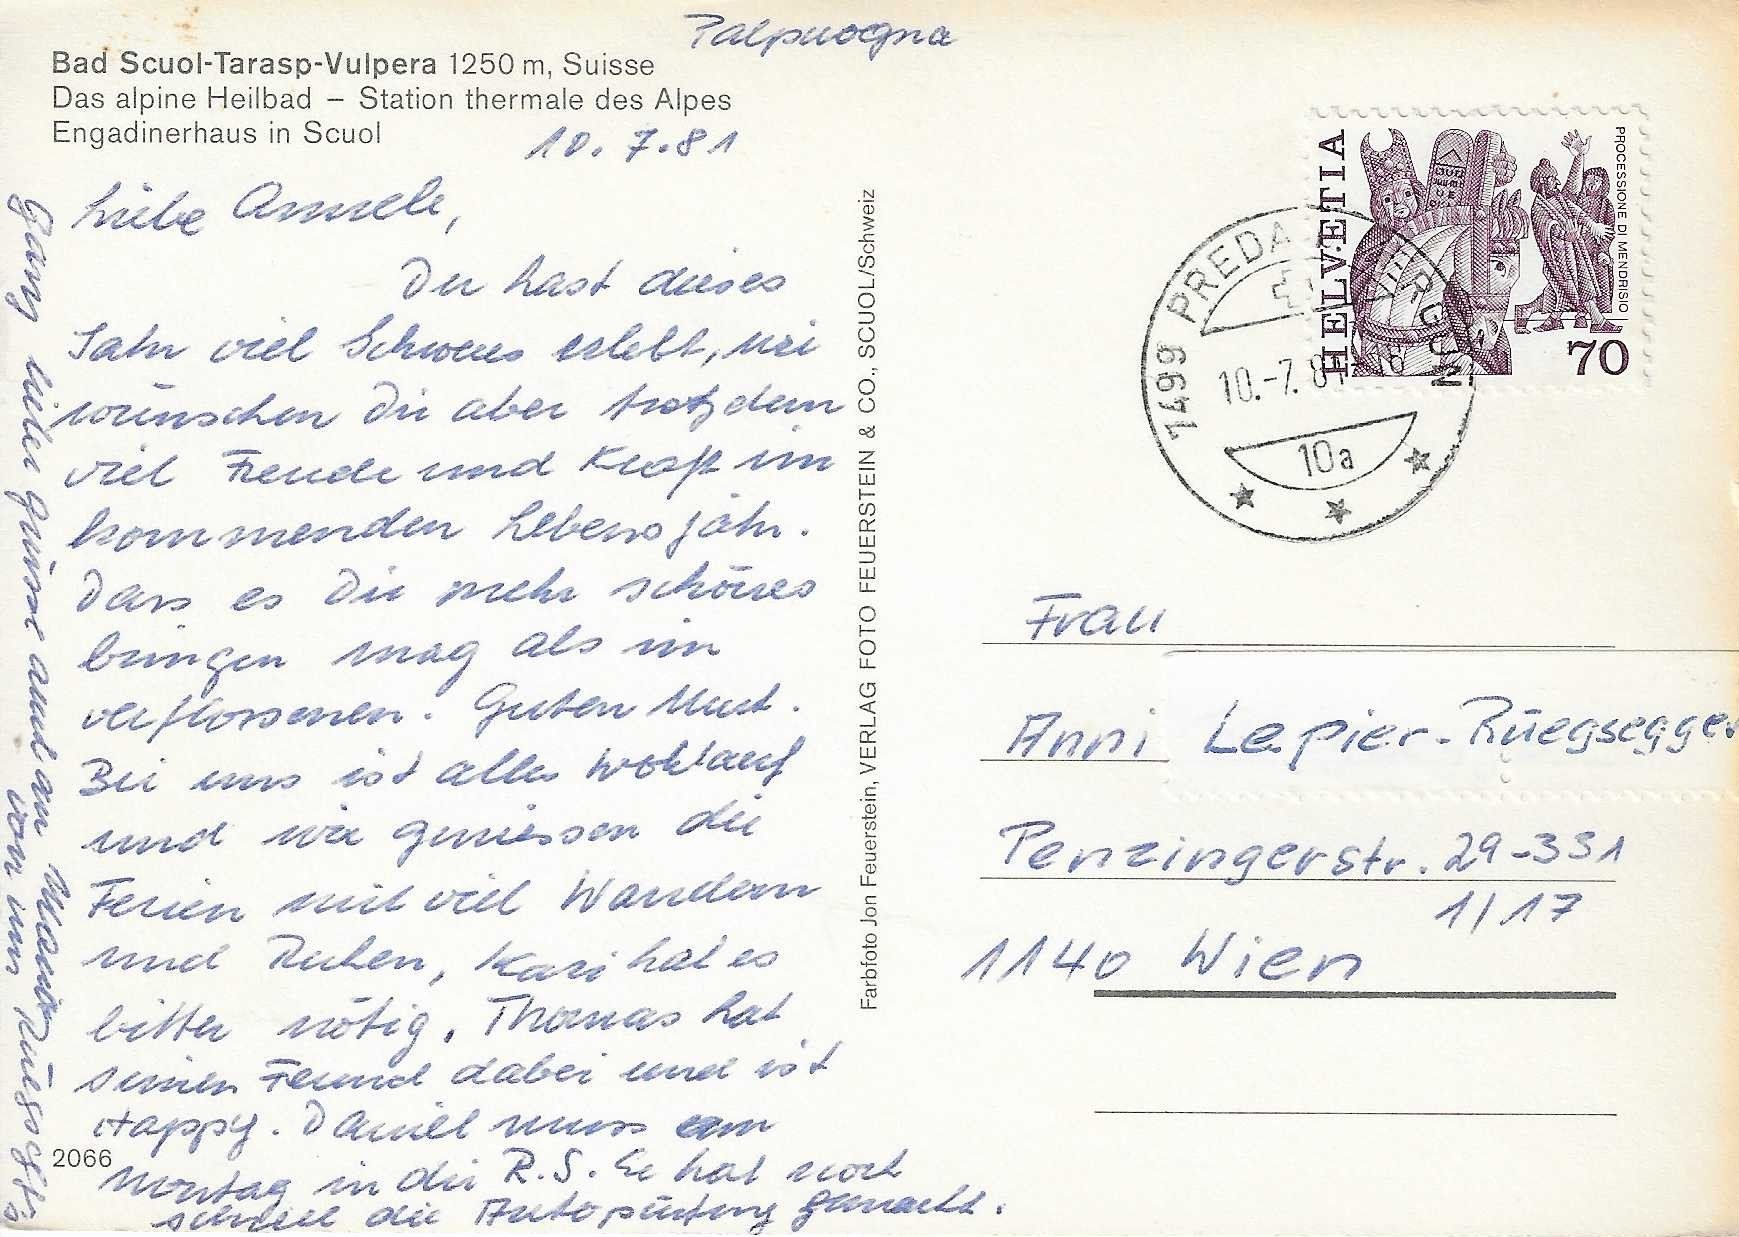 Palpuogna
Bad Scuol-Tarasp-Vulpera 1250 m, Suisse
Das alpine Heilbad – Station thermale des Alpes
Engadinerhaus in Scuol
10. 7. 81
Liebe Annele,
Du hast dieses
Jahr viel Schweres erlebt, wir
wünschen Dir aber trotzdem
viel Freude und Kraft im
kommenden Lebensjahr.
Dass es Dir mehr schönes
bringen mag als im
verflossenen. Guten Mut.
Bei uns ist alles wohlauf
und wir geniessen die
Ferien mit viel Wandern
und Ruhen, Kari hat es
bitter nötig. Thomas hat
seinen Freund dabei und ist
Happy. Daniel muss am
Montag in die R.S. Er hat noch
schnell die Autoprüfung gemacht.
Ganz liebe Grüsse auch an Mario
von uns Rüegsegger's
2066
Farbfoto Jon Feuerstein, VERLAG FOTO FEUERSTEIN & CO., SCUOL/Schweiz
HELVETIA
PROCESSIONE DI MENDRISIO
70
7499 PREDA BERGÜN
10.-7.81-18
10a
Frau
Anni Lepier-Rüegsegger
Penzingerstr. 29-331
1/17
1140 Wien